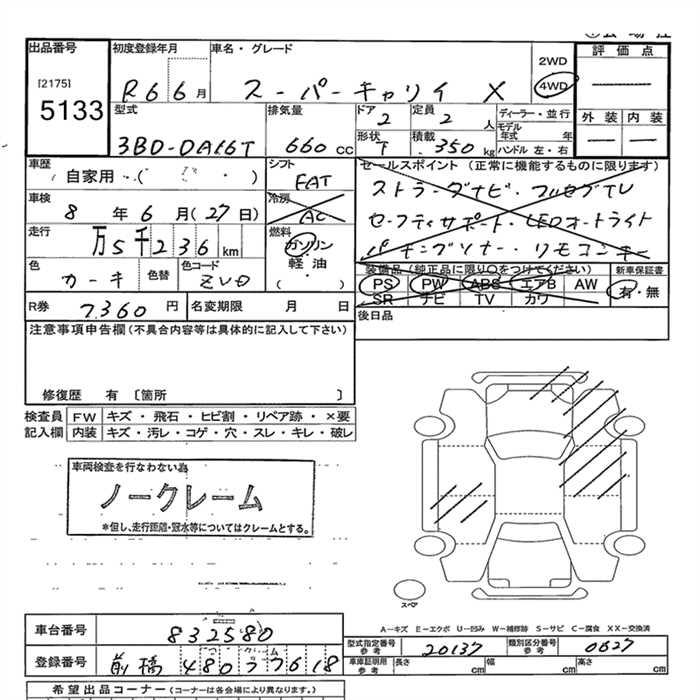 出品番号
[2175]
5133
初度登録年月
R6 6月
車名・グレード
スーパーキャリイ X
2WD
4WD
評価点
外装 内装
型式
3BD-DA16T
排気量
660 cc
ドア
2
定員
2 人
形状
T
積載
350 kg
ディーラー・並行
モデル年式 年
ハンドル 左・右
車歴
自家用 ( )
シフト
FAT
車検
8年 6月 (27日)
冷房
AC
走行
万5千236km
燃料
ガソリン
軽・油
( ・ )
色
カーキ
色替
色コード
ZVD
R券
7360 円
名変期限 月 日
セールスポイント (正常に機能するものに限ります)
ストラーダナビ・フルセグTV
セーフティサポート・LEDオートライト
パーキングソナー・リモコンキー
装備品 (純正品に限り○をつけてください)
PS PW ABS エアB AW
SR ナビ TV カワ
新車保証書
有・無
後日品
注意事項申告欄 (不具合内容等は具体的に記入して下さい)
修復歴 有 〔箇所 〕
検査員記入欄
FW キズ・飛石・ヒビ割・リペア跡・×要
内装 キズ・汚レ・コゲ・穴・スレ・キレ・破レ
車両検査を行なわない為
ノークレーム
*但し、走行距離・冠水等についてはクレームとする。
スペア
A-キズ E-エクボ U-凹み W-補修跡 S-サビ C-腐食 XX-交換済
車台番号
832580
登録番号
前橋 480 う 7618
型式指定番号 参考
20137
類別区分番号 参考
0627
車庫証明用 参考
長さ cm 幅 cm 高さ cm
希望出品コーナー (コーナーは各会場により異なります。)